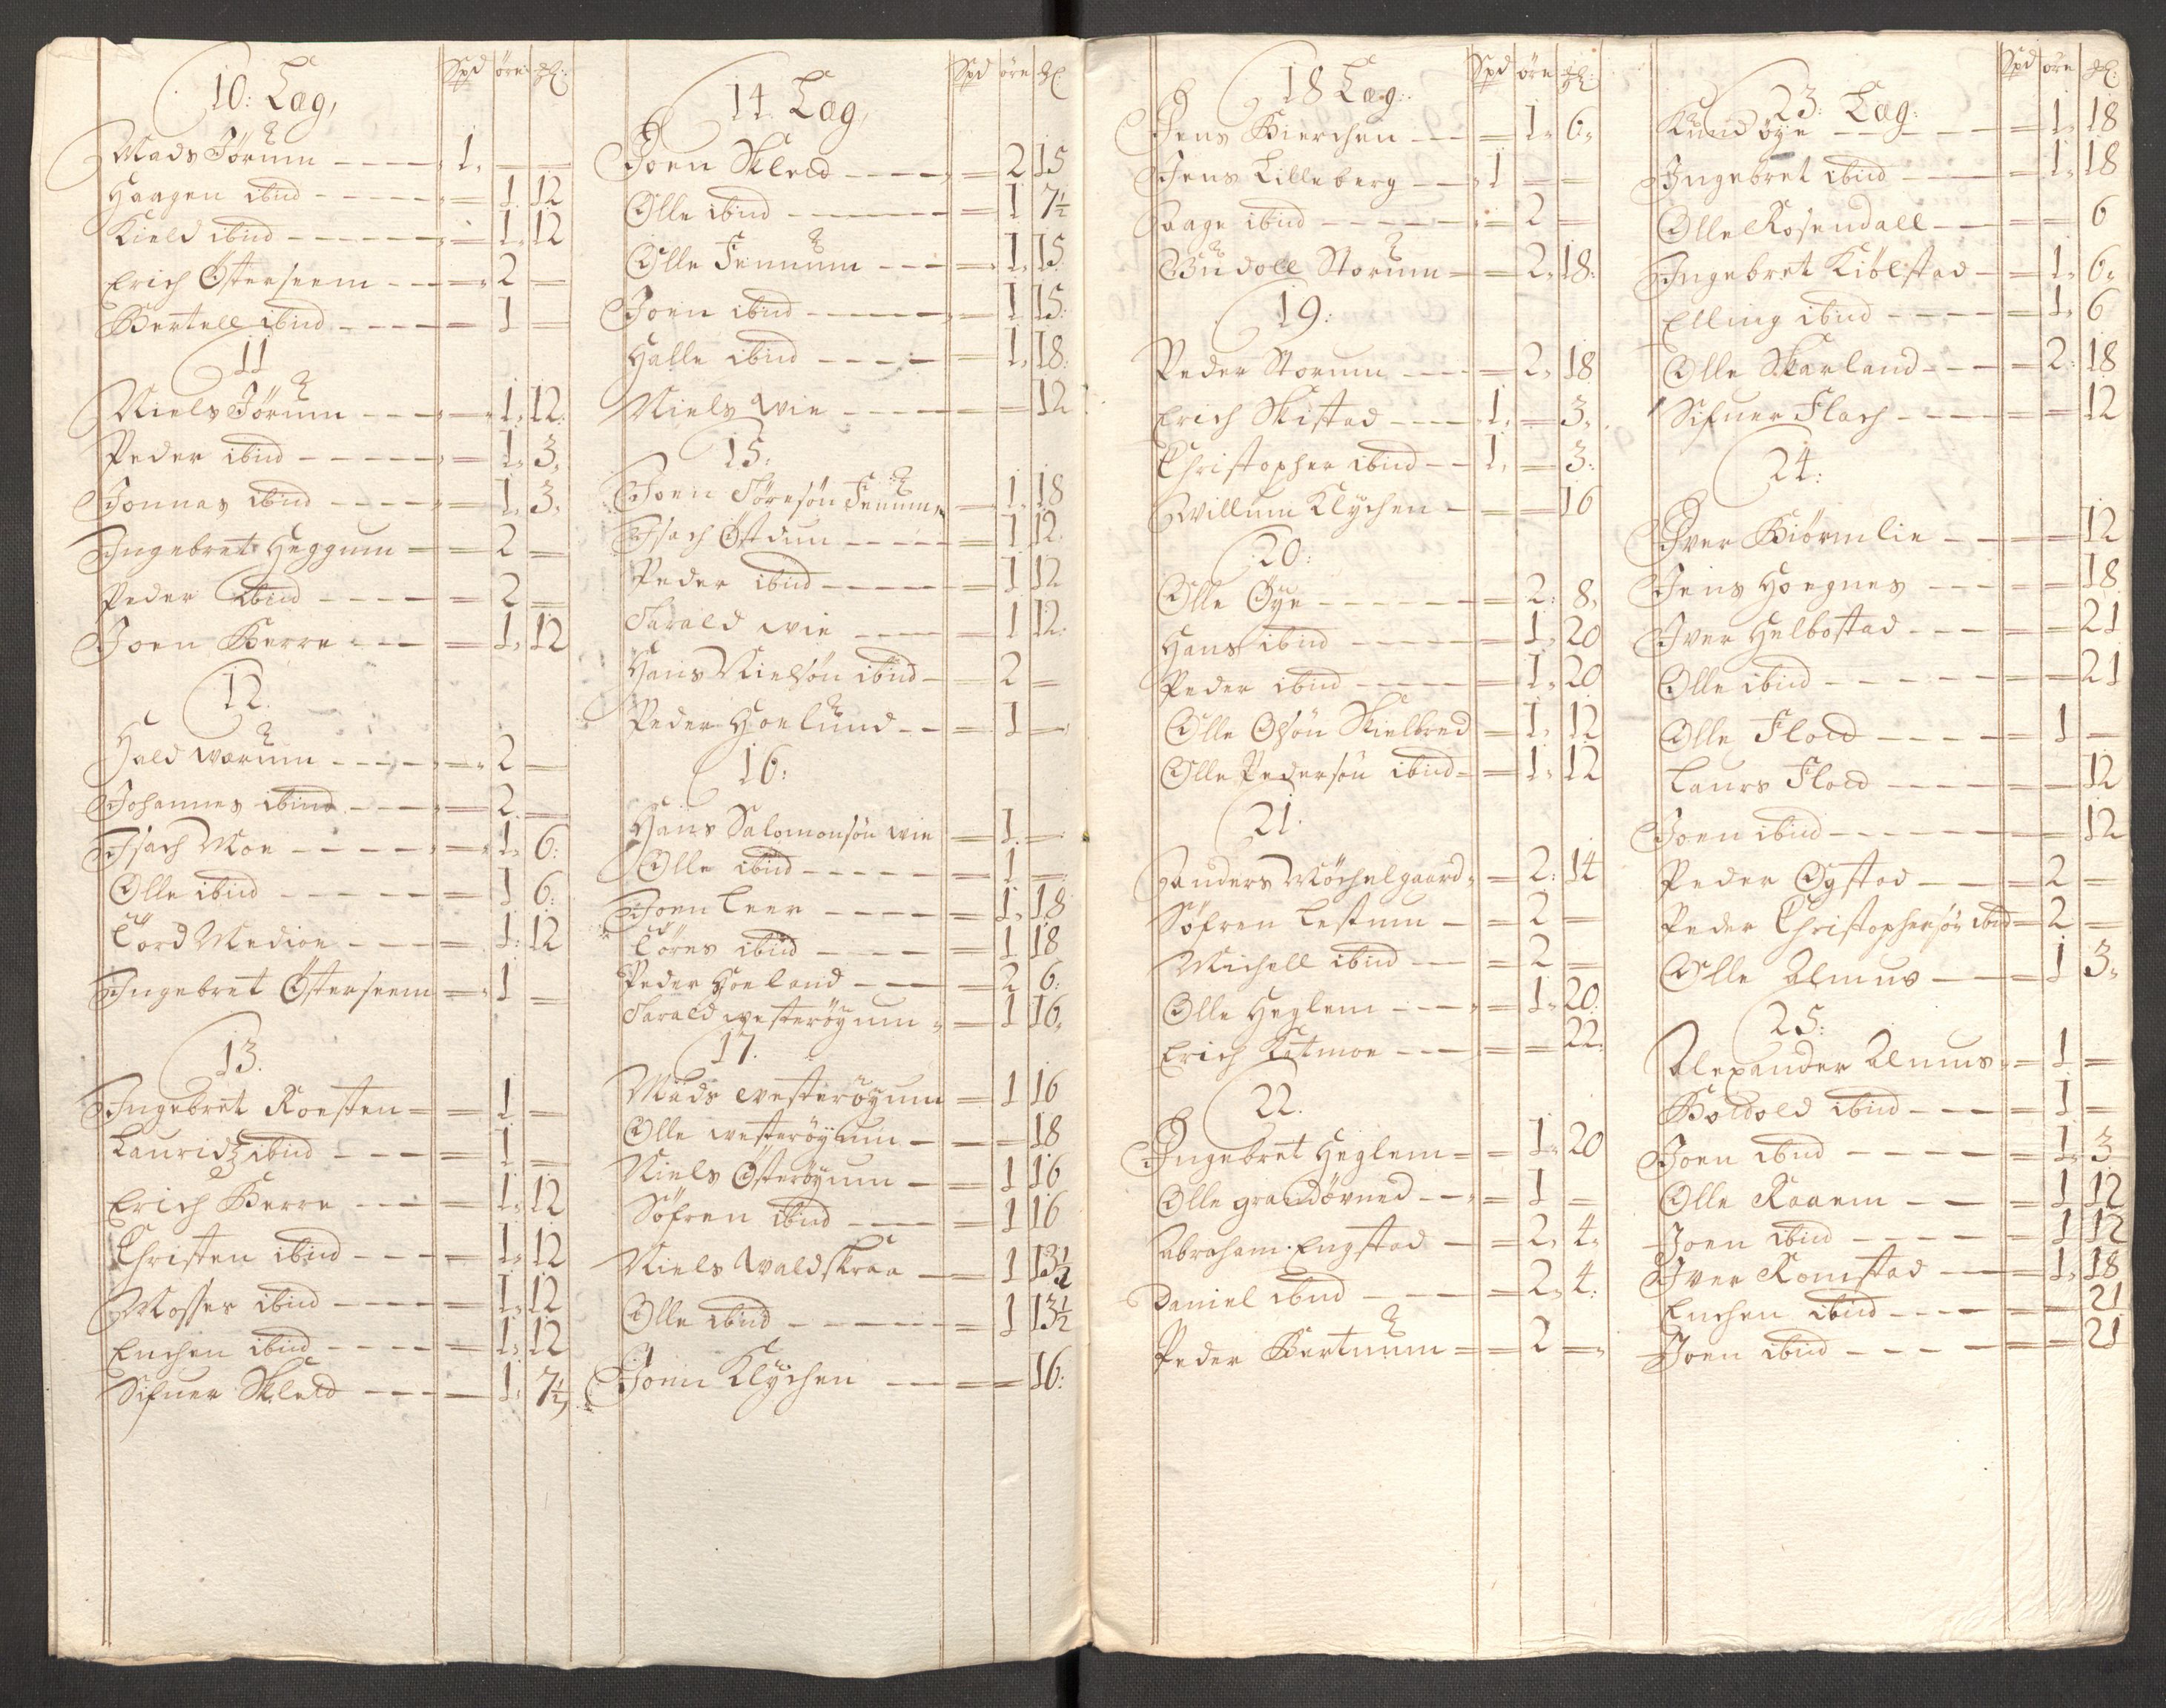 Spd öre ₰:
10: Læg,
Mads Jørum - - - - 1, = =
Haagen ibid - - - - = 1. 12
Kield ibid - - - - = 1, 12
Erich Østerseem - - = 2 =
Bertell ibid - - - - = 1 =
11
Niels Jørum - - - = 1, 12.
Peder ibid - - - - = 1, 3,
Jonnas ibid - - - - = 1, 3,
Ingebret Heggum = = 2 =
Peder ibid - - - - = 2 =
Joen Berre - - - = 1, 12
12.
Hald Wærum - - - - = 2 =
Johannes ibind - - - = 2 =
Isach Moe - - - - = 1, 6:
Olle ibid - - - - = 1 6:
Tord Medioe - - - = 1: 12
Ingebret Østerseem = 1 =
13.
Ingebret Roesten = = 1 =
Lauridz ibid - - - = 1 =
Erich Berre - - - = 1, 12
Christen ibid - - - = 1, 12
Mosses ibid - - - - = 1, 12
Enchen ibid - - - - = 1, 12
Sifuer Skleld - - - = 1, 7½
Spd öre ₰
14. Læg,
Joen Skleld - - - - = 2 15
Olle ibid - - - - - = 1 7½
Olle Femum - - - = 1, 15
Joen ibid - - - - - = 1 15:
Halle ibid - - - - = 1, 18:
Niels Wie - - - - = = 12
15.
Joen Tøresøn Femum, = 1, 18
Isach Østdun - - - - = 1 12.
Peder ibid - - - - = 1 12
Tarald Wie - - - - = 1 12.
Hans Nielsøn ibid - = 2 =
Peder Hoelund - - = 1 =
16:
Hans Salomonsøn Wie = 1. =
Olle ibid - - - - - = 1 =
Joen Leer - - - - = 1, 18
Töres ibid - - - - = 1 18
Peder Hoeland - - - = 2 6:
Tarald Westerøyum = 1 16,
17.
Mads Westerøyum = 1 16
Olle Westerøyum - = = 18
Niels Østerøyum - = 1 16
Søfren ibid - - - - = 1 16
Niels Waldskraa - = 1 13½
Olle ibid - - - - - = 1 13½
Joen Klychen - - - = = 16:
Spd öre ₰:
18 Læg:
Jens Bierchen - - - = 1, 6,
Jens Lilleberg - - - 1 = =
Saage ibid - - - - = 2 =
Budoll Storum = = 2, 18.
19:
Peder Storum - - - = 2, 18
Erich Skistad - - - - 1, = 3,
Christopher ibid - - 1, = 3:
Willum Klychen - = = 16
20:
Olle Øye - - - - - = 2: 8,
Hans ibid - - - - - = 1, 20
Peder ibid - - - - = 1, 20
Olle Olsøn Skielbred = 1, 12
Olle Pedersøn ibid = = 1, 12
21.
Anders Møchelgaard, = 2: 14
Søfren Lestum - = 2 =
Michell ibid - - - = 2 =
Olle Heglem - - - = 1, 20:
Erich Katmoe - - - = = 22.
22.
Ingebret Heglem = = 1, 20
Olle Grandøvned - - = 1 =
Abraham Engstad - = 2, 4,
Daniel ibid - - - - = 2, 4:
Peder Bertnum = = 2 =
Spd öre ₰:
23: Læg:
Knud Øye - - - - - = 1, 18
Ingebret ibid - - - = 1, 18
Olle Rosendall - - = = 6
Ingebret Kiølstad - = 1, 6,
Elling ibid - - - - = 1, 6
Olle Skarland - - - = 2: 18
Sifuer Flach - - - - = = 12
24:
Iver Biørmlie - - = = 12
Jens Hoegnes - - - = = 18
Iver Helbostad - - - = = 21
Olle ibid - - - - - = = 21
Olle Floed - - - - = 1 =
Laurs Floed - - - - = = 12
Joen ibid - - - - - = = 12
Peder Øystad - - - = 2 =
Peder Christophersøn ibid = 2 =
Olle Almus - - - = 1 3,
25:
Alexander Almus, = 1 =
Boldold ibid - - - = 1 =
Joen ibid - - - - = 1, 3
Olle Raaem - - - = 1 12
Joen ibid - - - - = 1 12
Iver Romstad - - = 1, 18
Enchen ibid - - - - = = 21
Joen ibid - - - - = = 21